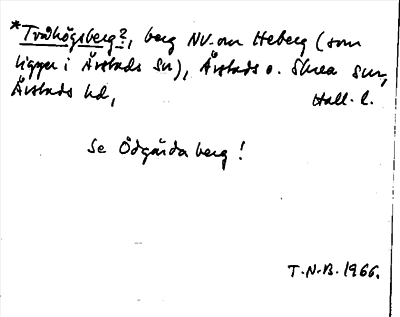 *Tvåhögsberg?, berg NV. om Heberg (som
ligger i Årstads sn), Årstads o. Skrea snr,
Årstads hd, Hall. l.
Se Ödgärda berg!
T.N.B. 1966.